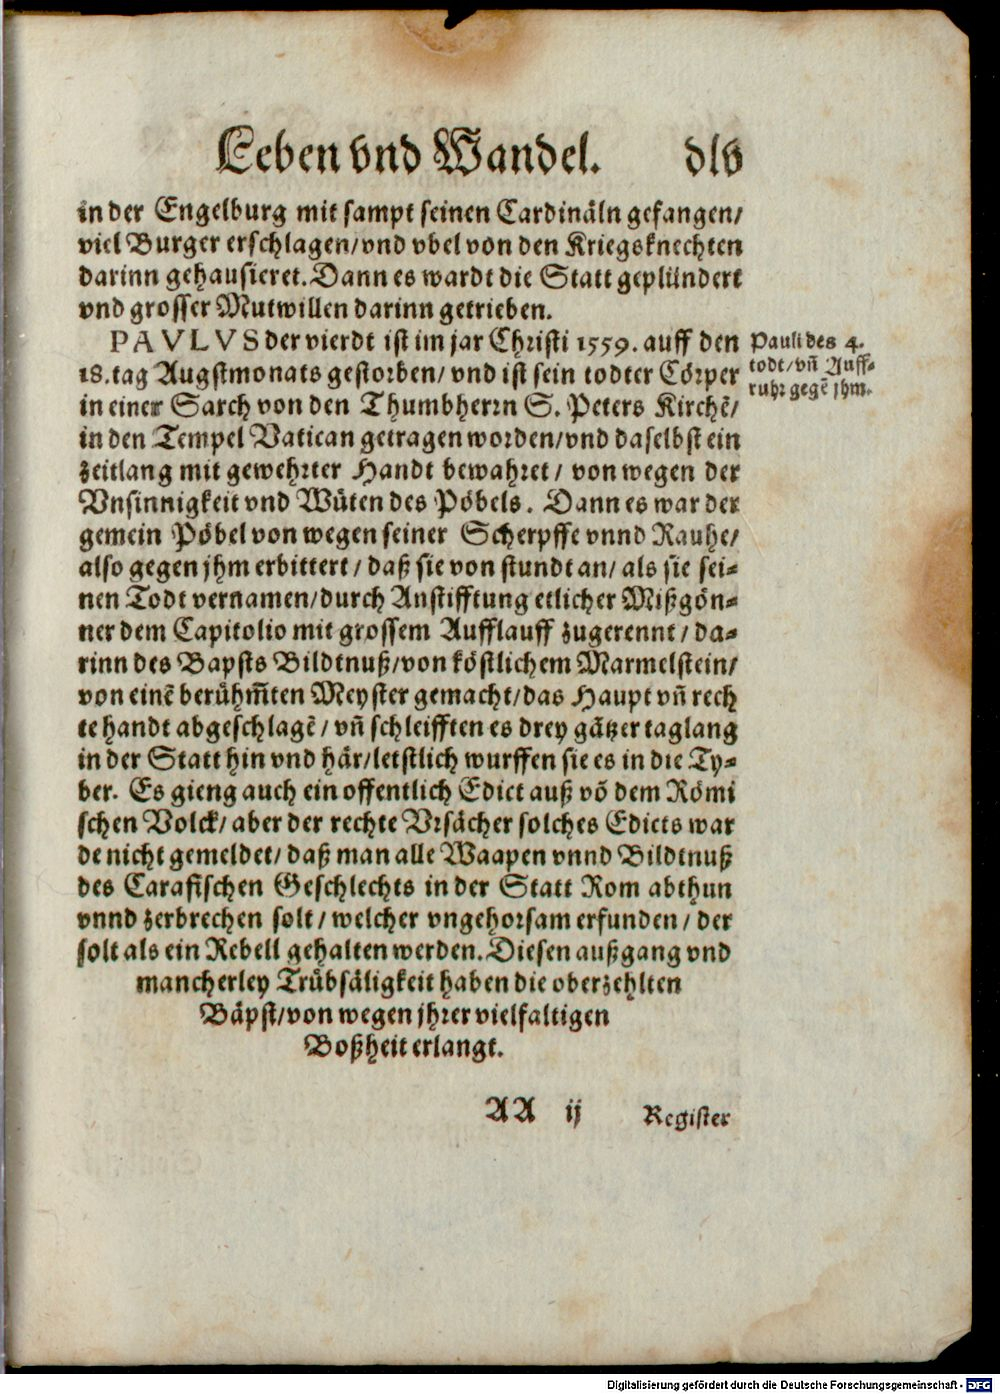 Leben vnd Wandel. dlv
in der Engelburg mit sampt seinen Cardinäln gefangen/
viel Burger erschlagen/vnd vbel von den Kriegsknechten
darinn gehausieret. Dann es wardt die Statt geplündert
vnd grosser Mutwillen darinn getrieben.
PAVLVS der vierdt ist im jar Christi 1559. auff den
18. tag Augstmonats gestorben/ vnd ist sein todter Cörper
in einer Sarch von den Thumbherrn S. Peters Kirchẽ/
in den Tempel Vatican getragen worden/vnd daselbst ein
zeitlang mit gewehrter Handt bewahret/ von wegen der
Vnsinnigkeit vnd Wüten des Pöbels. Dann es war der
gemein Pöbel von wegen seiner Scherpffe vnnd Rauhe/
also gegen jhm erbittert/ daß sie von stundt an/ als sie sei-
nen Todt vernamen/durch Anstifftung etlicher Mißgön-
ner dem Capitolio mit grossem Aufflauff zugerennt/ da-
rinn des Bapsts Bildtnuß/von köstlichem Marmelstein/
von einẽ berühm̃ten Meyster gemacht/das Haupt vñ rech
te handt abgeschlagẽ/ vñ schleifften es drey gãtzer taglang
in der Statt hin vnd här/letstlich wurffen sie es in die Ty-
ber. Es gieng auch ein offentlich Edict auß võ dem Römi
schen Volck/ aber der rechte Vrsächer solches Edicts war
de nicht gemeldet/ daß man alle Waapen vnnd Bildtnuß
des Carafischen Geschlechts in der Statt Rom abthun
vnnd zerbrechen solt/ welcher vngehorsam erfunden/ der
solt als ein Rebell gehalten werden. Diesen außgang vnd
mancherley Trübsäligkeit haben die oberzehlten
Bäpst/von wegen jhrer vielfaltigen
Boßheit erlangt.
Pauli des 4.
todt/vñ Auff-
ruhr gegẽ jhm.
AA ij Register
Digitalisierung gefördert durch die Deutsche Forschungsgemeinschaft - DFG